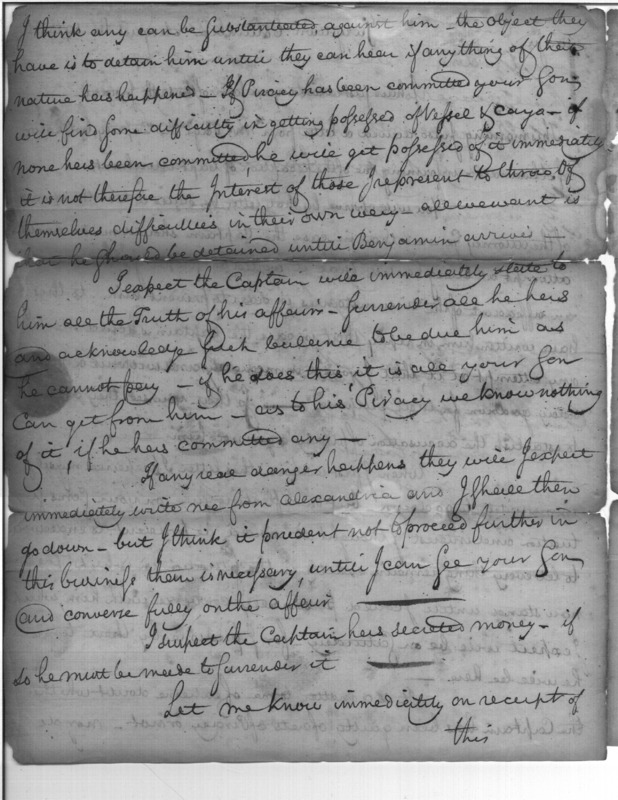 I think any can be Substantiated against him — the object they
have is to detain him until they can hear if anything of their
nature has happened — If Piracy has been committed your Son
will find some difficulty in getting possessed of Vessel & Cargo — if
none has been committed he will get possessed of it immediately
it is not therefore the Interest of those I represent to throw
themselves difficulties in their own way — all we want is
that he should be detained until Benjamin arrives —
I expect the Captain will immediately state to
him all the Truth of his affairs — Surrender all he has
and acknowledge such balance to be due him as
he cannot pay — if he does this it is all your Son
Can get from him — as to his Piracy we know nothing
of it, if he has committed any —
If any real danger happens they will I expect
immediately write me from Alexandria and I shall then
go down — but I think it prudent not to proceed further in
this business than is necessary, until I can See your Son
and converse fully on the affair
I suspect the Captain has secreted money — if
so he must be made to Surrender it
Let me know immediately on receipt of
this